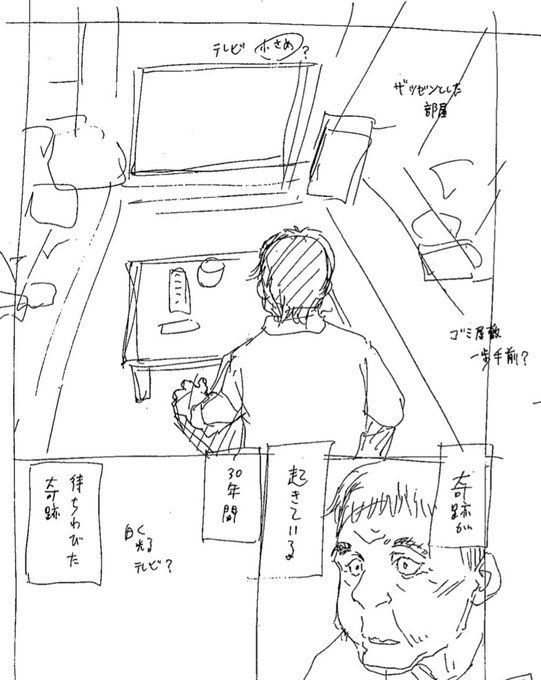 テレビ 小さめ?
ザツゼンとした
部屋
ゴミ屋敷
一歩手前?
奇跡が
起きている
30年間
待ちわびた
奇跡
白く
光る
テレビ?